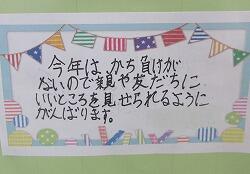 今年は、かち負けが
ないので親や友だちに
いいところを見せられるように
がんばります。